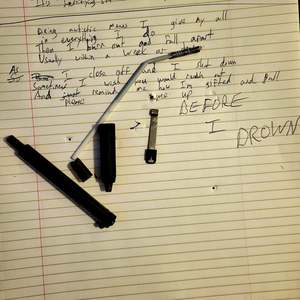 Being autistic means I give my all
in everything I do
Then I burn out and fall apart
Usually within a week or
As I close off and I shut down
Sometimes I wish you would reach out
And remind me how I'm gifted and pull
me up
BEFORE
I
DROWN